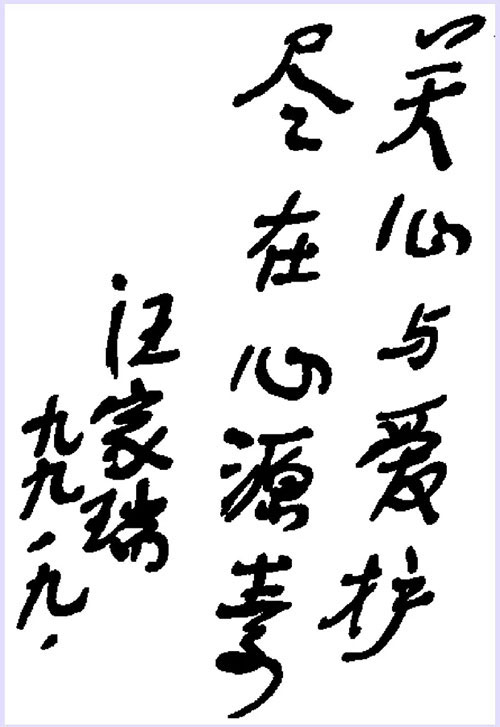 关心与爱护
尽在心源素
汪家瑞
九九.九.